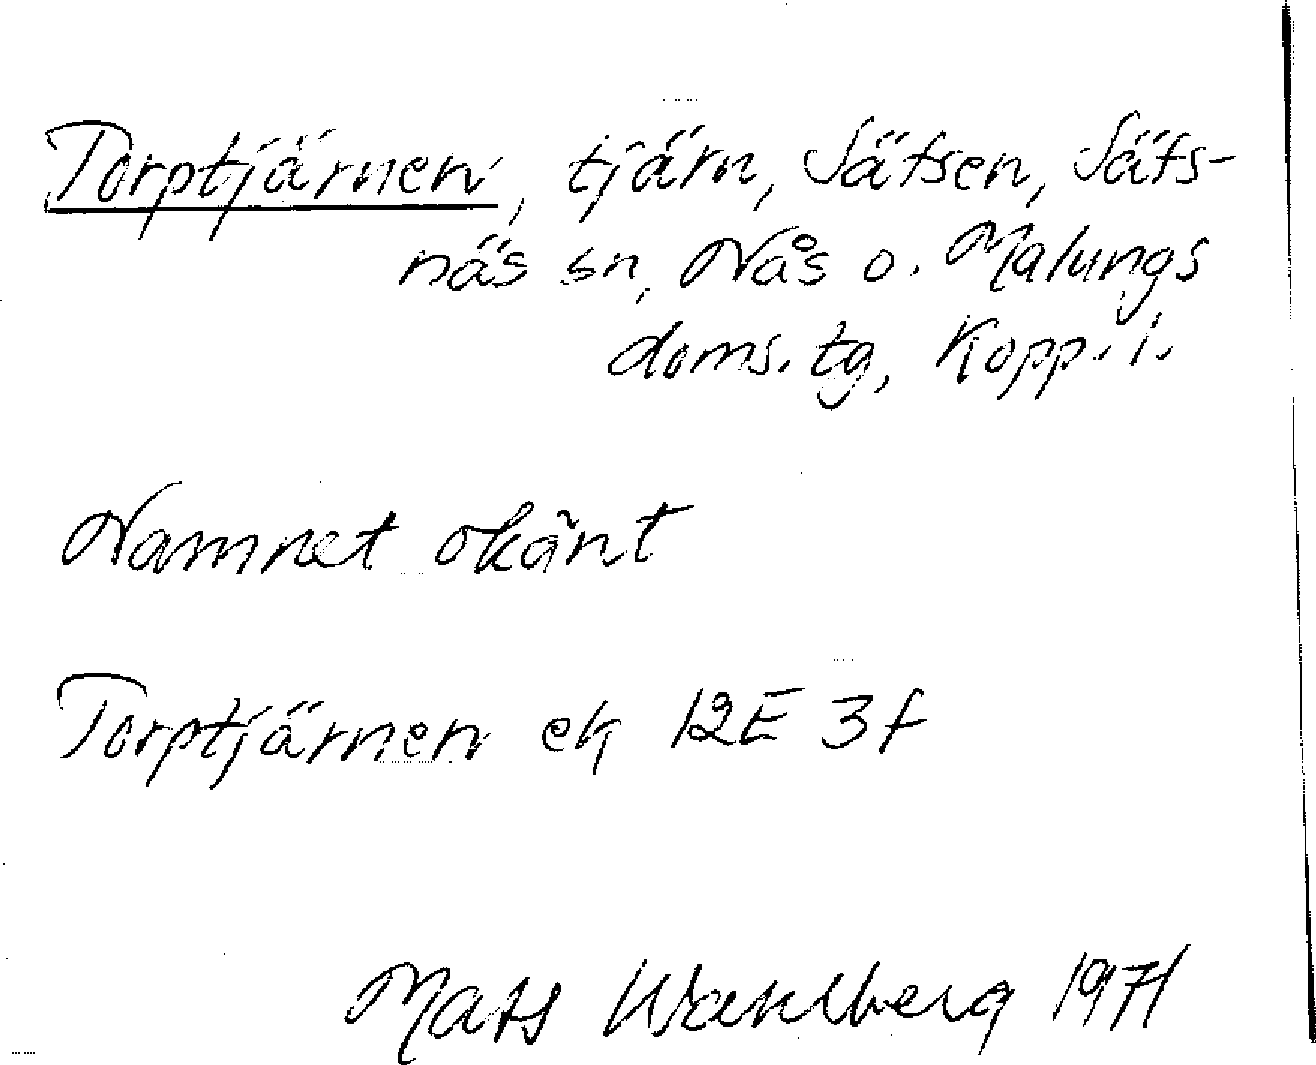 Torptjärnen, tjärn, Sätsen, Säfs-
näs sn, Nås o. Malungs
doms. tg, Kopp. l.
Namnet okänt
Torptjärnen ek 12E 3f
Mats Wahlberg 1971